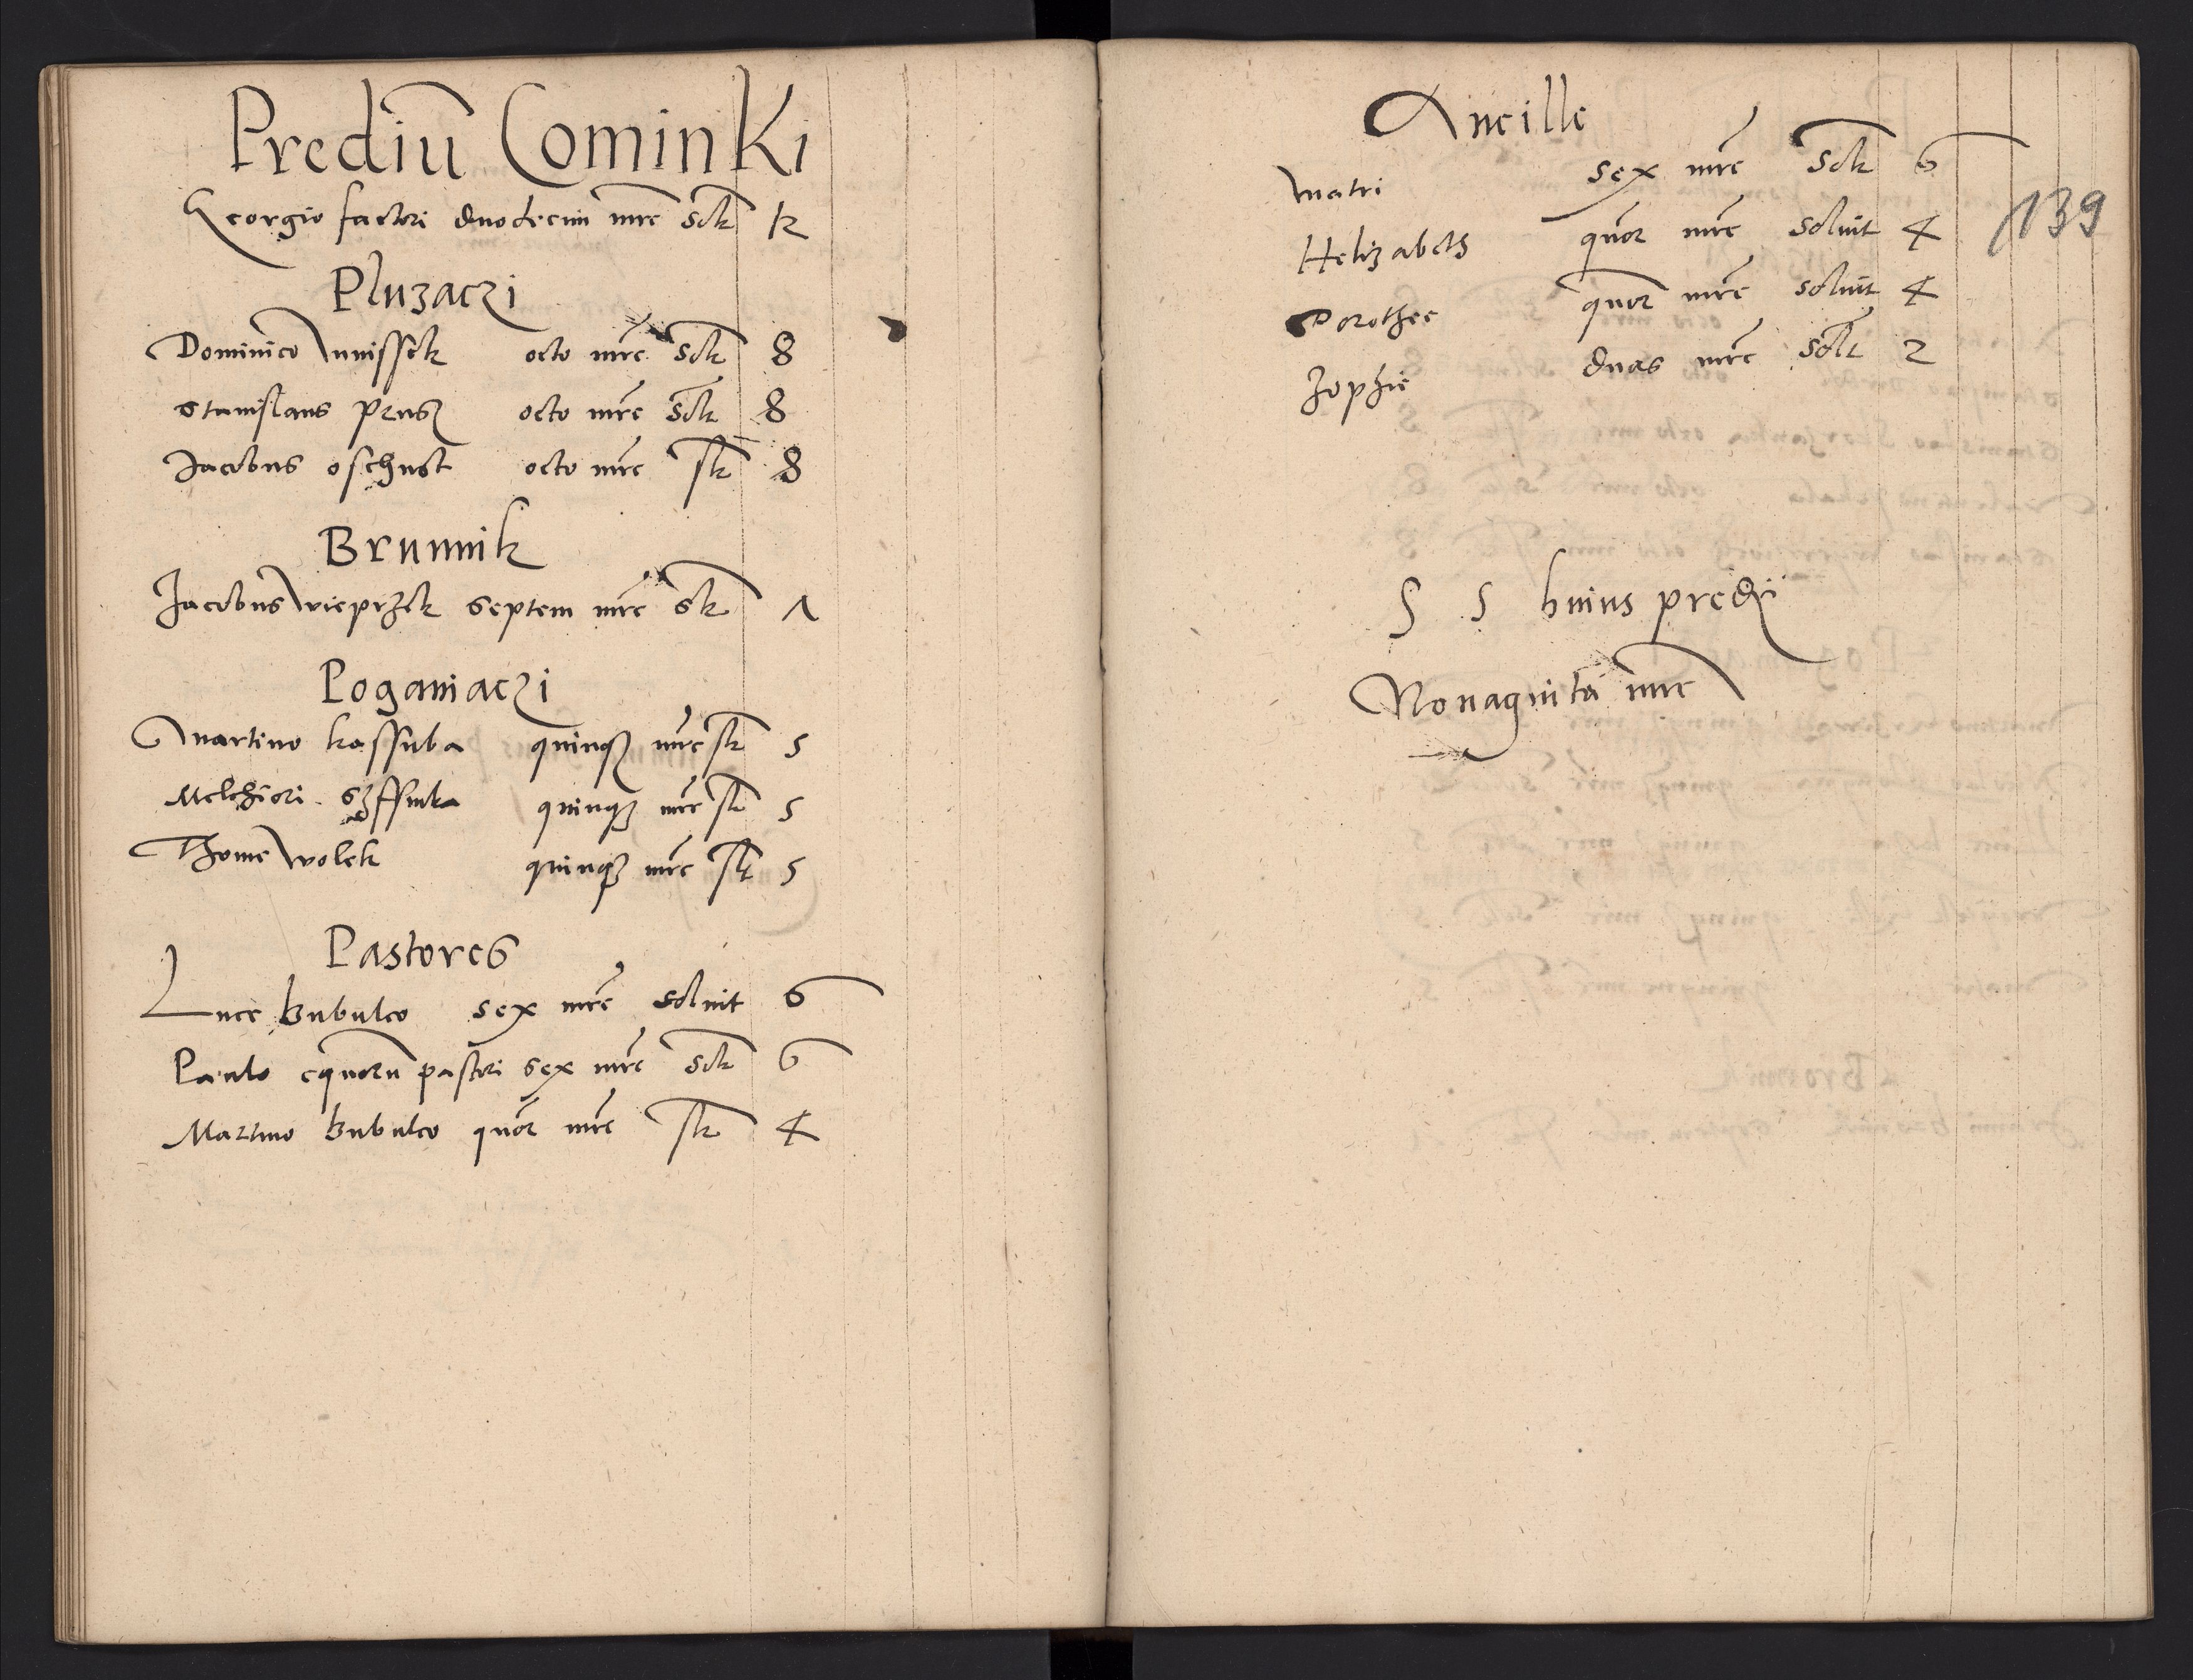 Prediū Cominki
Georgio factori duodecim mrc solt 12
Pluzaczi
Dominico mnissek octo mrc solt 8
Stanislaus prusz octo mrc solt 8
Jacobus oschust octo mrc slt 8
Brumnik
Jacobus wieprzek septem mrc slt 7
Poganiaczi
Martino kassuba quinqz mrc slt 5
Melchiori quinqz mrc slt 5
Thome wolek quinqz mrc slt 5
Pastores
Luce bubulco sex mrc soluit 6
Paulo equorū pastori sex mrc solt 6
Martino bubulco quor mrc slt 4
Ancille
matri sex mrc solt 6
Helizabeth quor mrc soluit 4
Dorothee quor mrc soluit 4
Zophie duas mrc solt 2
S S huius predii
Nonaginta mrc
139